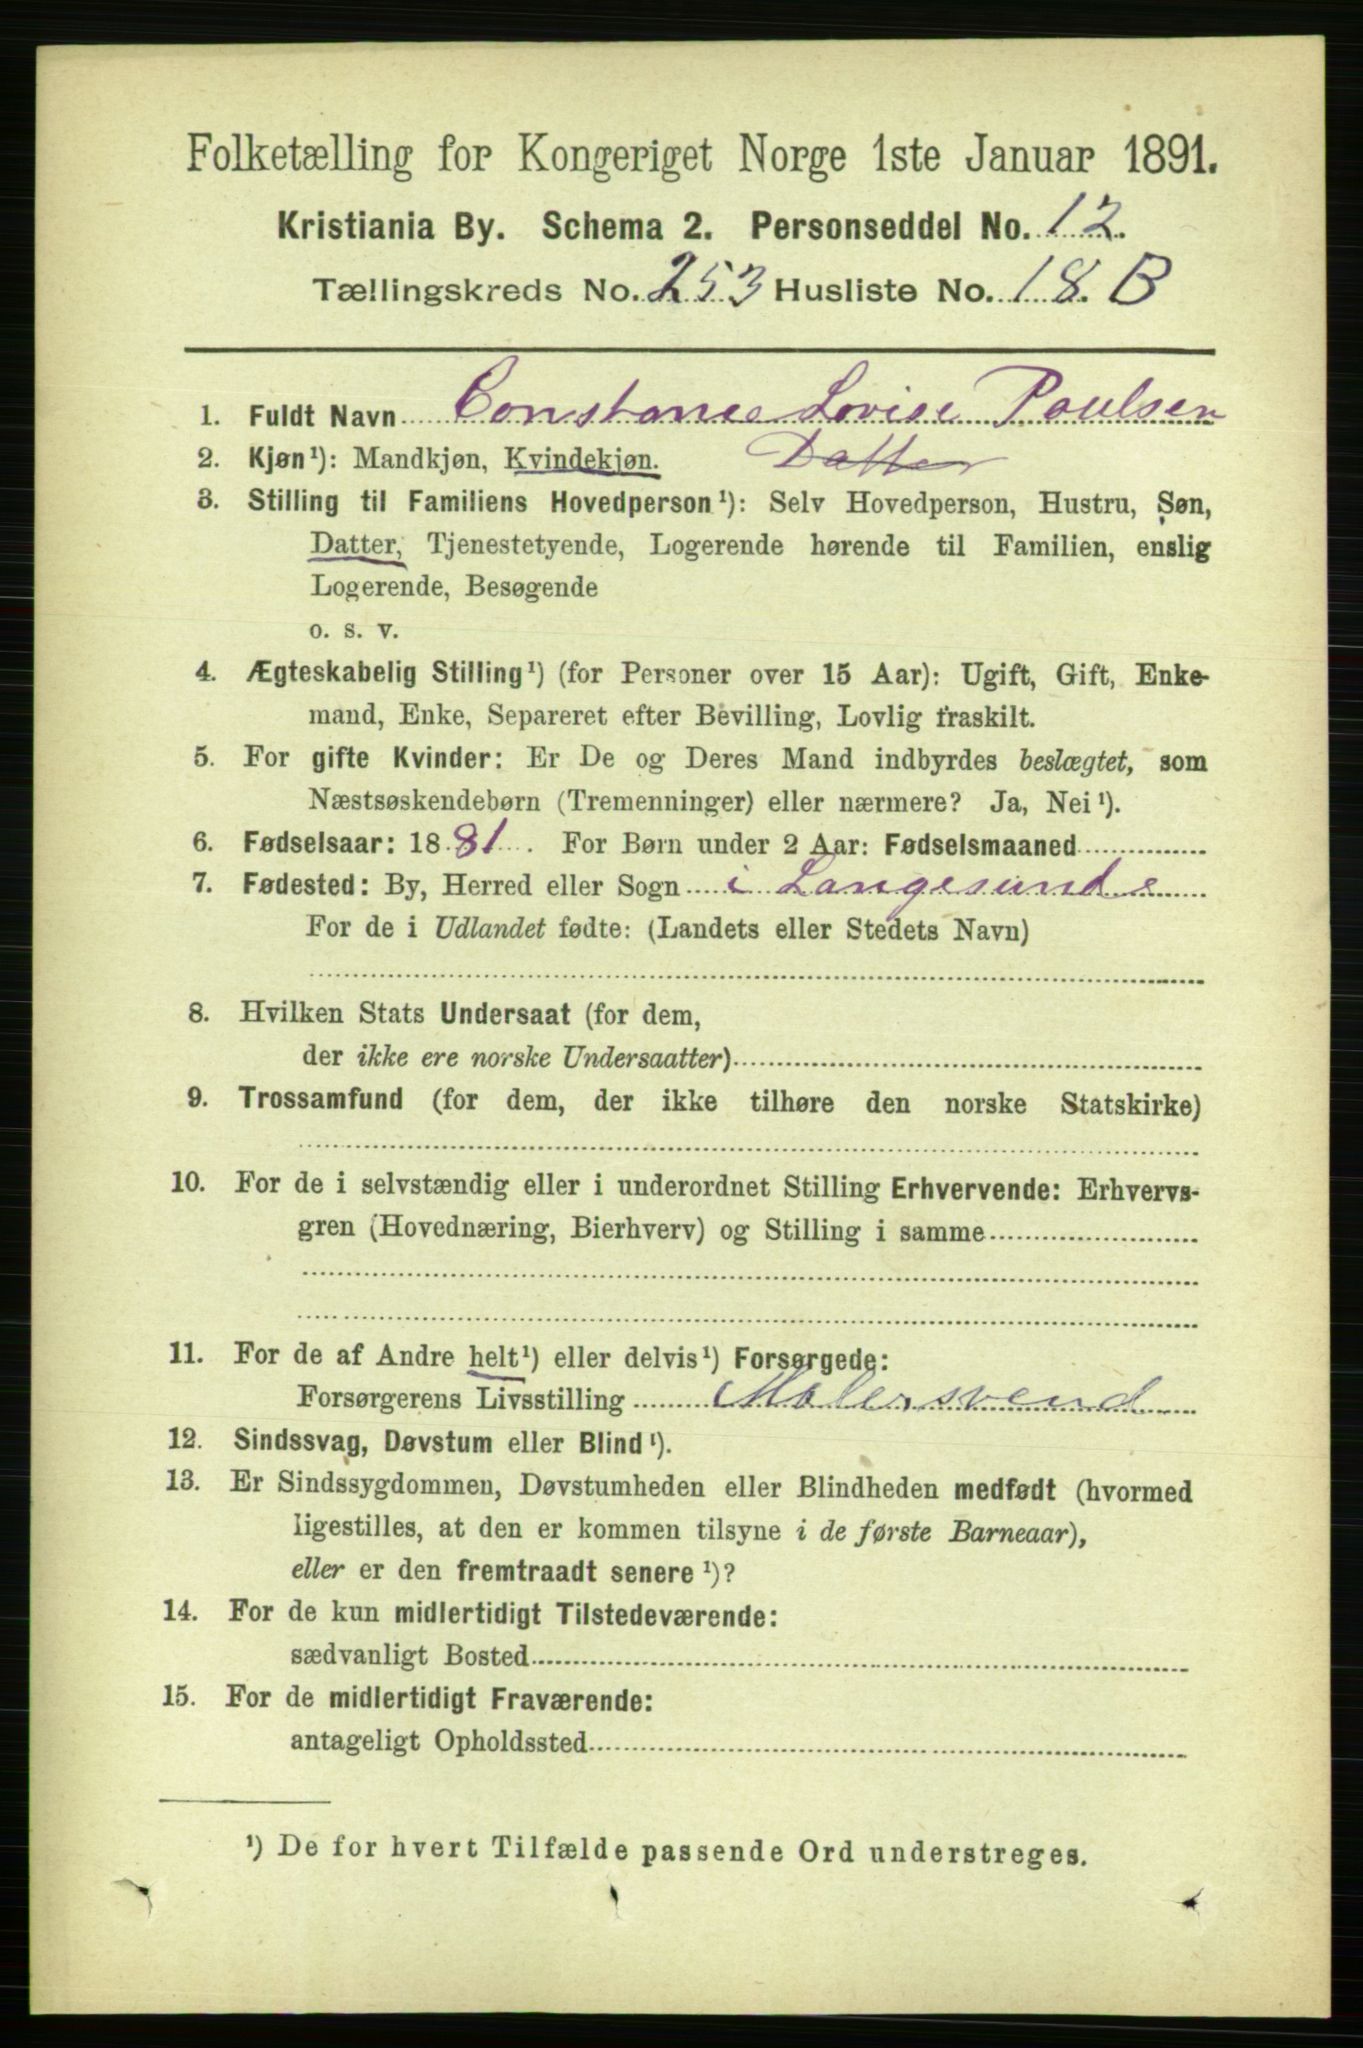 Folketælling for Kongeriget Norge 1ste Januar 1891.
Kristiania By. Schema 2. Personseddel No. 12.
Tællingskreds No. 253 Husliste No. 18. B
1. Fuldt Navn Constance Lovise Poulsen
2. Kjøn¹): Mandkjøn, Kvindekjøn. Datter
3. Stilling til Familiens Hovedperson¹): Selv Hovedperson, Hustru, Søn,
Datter, Tjenestetyende, Logerende hørende til Familien, enslig
Logerende, Besøgende
o. s. v.
4. Ægteskabelig Stilling¹) (for Personer over 15 Aar): Ugift, Gift, Enke-
mand, Enke, Separeret efter Bevilling, Lovlig fraskilt.
5. For gifte Kvinder: Er De og Deres Mand indbyrdes beslægtet, som
Næstsøskendebørn (Tremenninger) eller nærmere? Ja, Nei¹).
6. Fødselsaar: 1881. For Børn under 2 Aar: Fødselsmaaned
7. Fødested: By, Herred eller Sogn i Langesund
For de i Udlandet fødte: (Landets eller Stedets Navn)
8. Hvilken Stats Undersaat (for dem,
der ikke ere norske Undersaatter)
9. Trossamfund (for dem, der ikke tilhøre den norske Statskirke)
10. For de i selvstændig eller i underordnet Stilling Erhvervende: Erhvervs-
gren (Hovednæring, Bierhverv) og Stilling i samme
11. For de af Andre helt¹) eller delvis¹) Forsørgede:
Forsørgerens Livsstilling Malersvend
12. Sindssvag, Døvstum eller Blind¹).
13. Er Sindssygdommen, Døvstumheden eller Blindheden medfødt (hvormed
ligestilles, at den er kommen tilsyne i de første Barneaar),
eller er den fremtraadt senere¹)?
14. For de kun midlertidigt Tilstedeværende:
sædvanligt Bosted
15. For de midlertidigt Fraværende:
antageligt Opholdssted
¹) De for hvert Tilfælde passende Ord understreges.